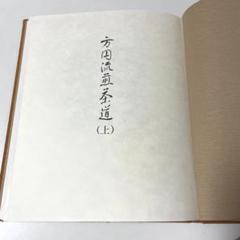 方円流煎茶道
(上)